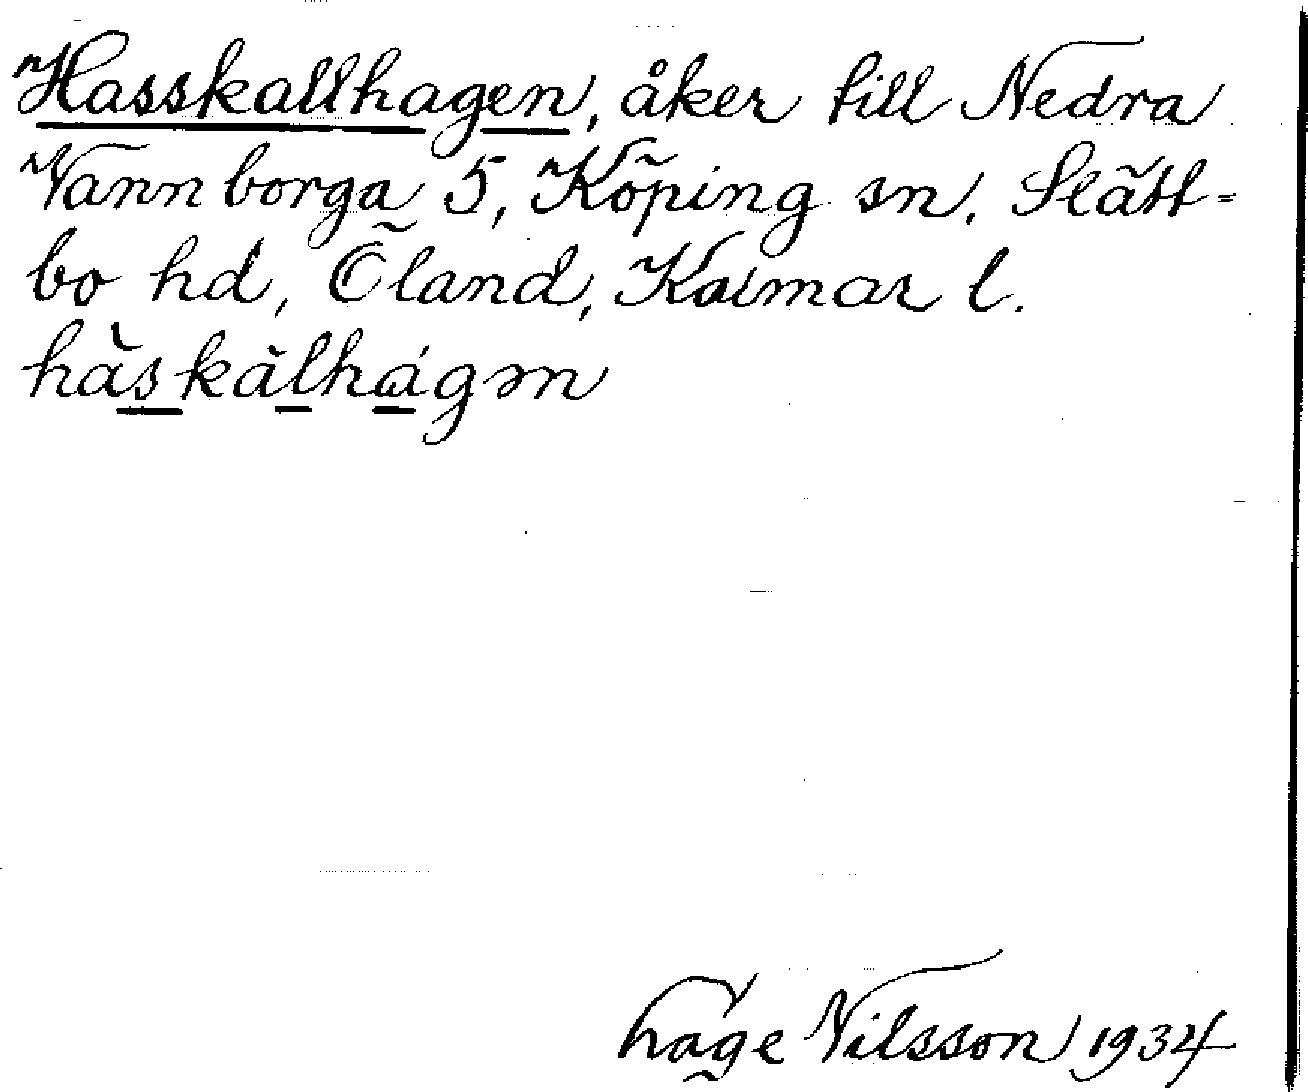 Hasskallhagen, åker till Nedra
Vannborga 5, Köping sn. Slätt-
bo hd, Öland, Kalmar l.
hàskàlhágən
Tage Nilsson 1934